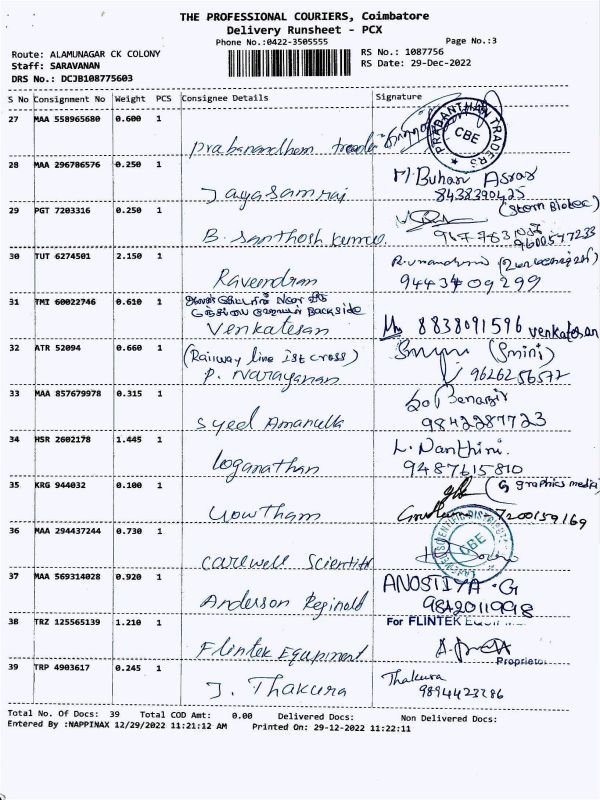 THE PROFESSIONAL COURIERS, Coimbatore
Delivery Runsheet - PCX
Phone No.:0422-3505555
Page No.:3
Route: ALAMUNAGAR CK COLONY
RS No.: 1087756
Staff: SARAVANAN
RS Date: 29-Dec-2022
DRS No.: DCJB108775603
S No Consignment No Weight PCS Consignee Details Signature
27 MAA 558965680 0.600 1
PRABANANTHAN TRADERS CBE
28 MAA 296786576 0.250 1
M. Buhari
Jayasamraj 8438390425
29 PGT 7203316 0.250 1
B. Santhosh Kumar
9600577233
30 TUT 6274501 2.150 1
Raveendran 9443409299
31 TMI 60022746 0.610 1
Near
Backside
Venkatesan 8838091596 venkatesan
32 ATR 52094 0.660 1
(Railway line Ist cross) (Smini)
P. Narayanan 9626256577
33 MAA 857679978 0.315 1
Syed Amanulla 9842287723
34 HSR 2602178 1.445 1
L. Nanthini.
Loganathan 9487615810
35 KRG 944032 0.100 1
(G graphics media)
Gowtham 7200159169
36 MAA 294437244 0.730 1
CBE
Carewell Scientific
37 MAA 569314028 0.920 1
ANOSTIYA .G
Anderson Reginold 9842011998
38 TRZ 125565139 1.210 1
For FLINTEK
Flintek Equpment
Proprietor
39 TRP 4903617 0.245 1
Thakura
J. Thakura 9894423286
Total No. Of Docs: 39 Total COD Amt: 0.00 Delivered Docs: Non Delivered Docs:
Entered By :NAPPINAX 12/29/2022 11:21:12 AM Printed On: 29-12-2022 11:22:11